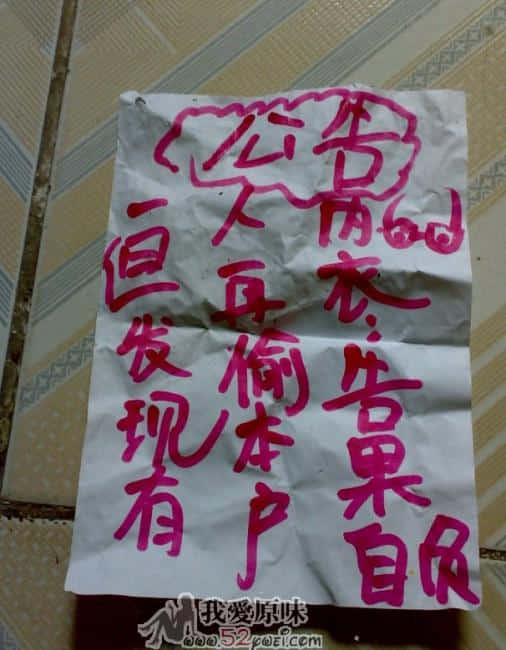 公告
一但发现有
人再偷本户
内衣、告果自负
我愛原味
www.52ywei.com